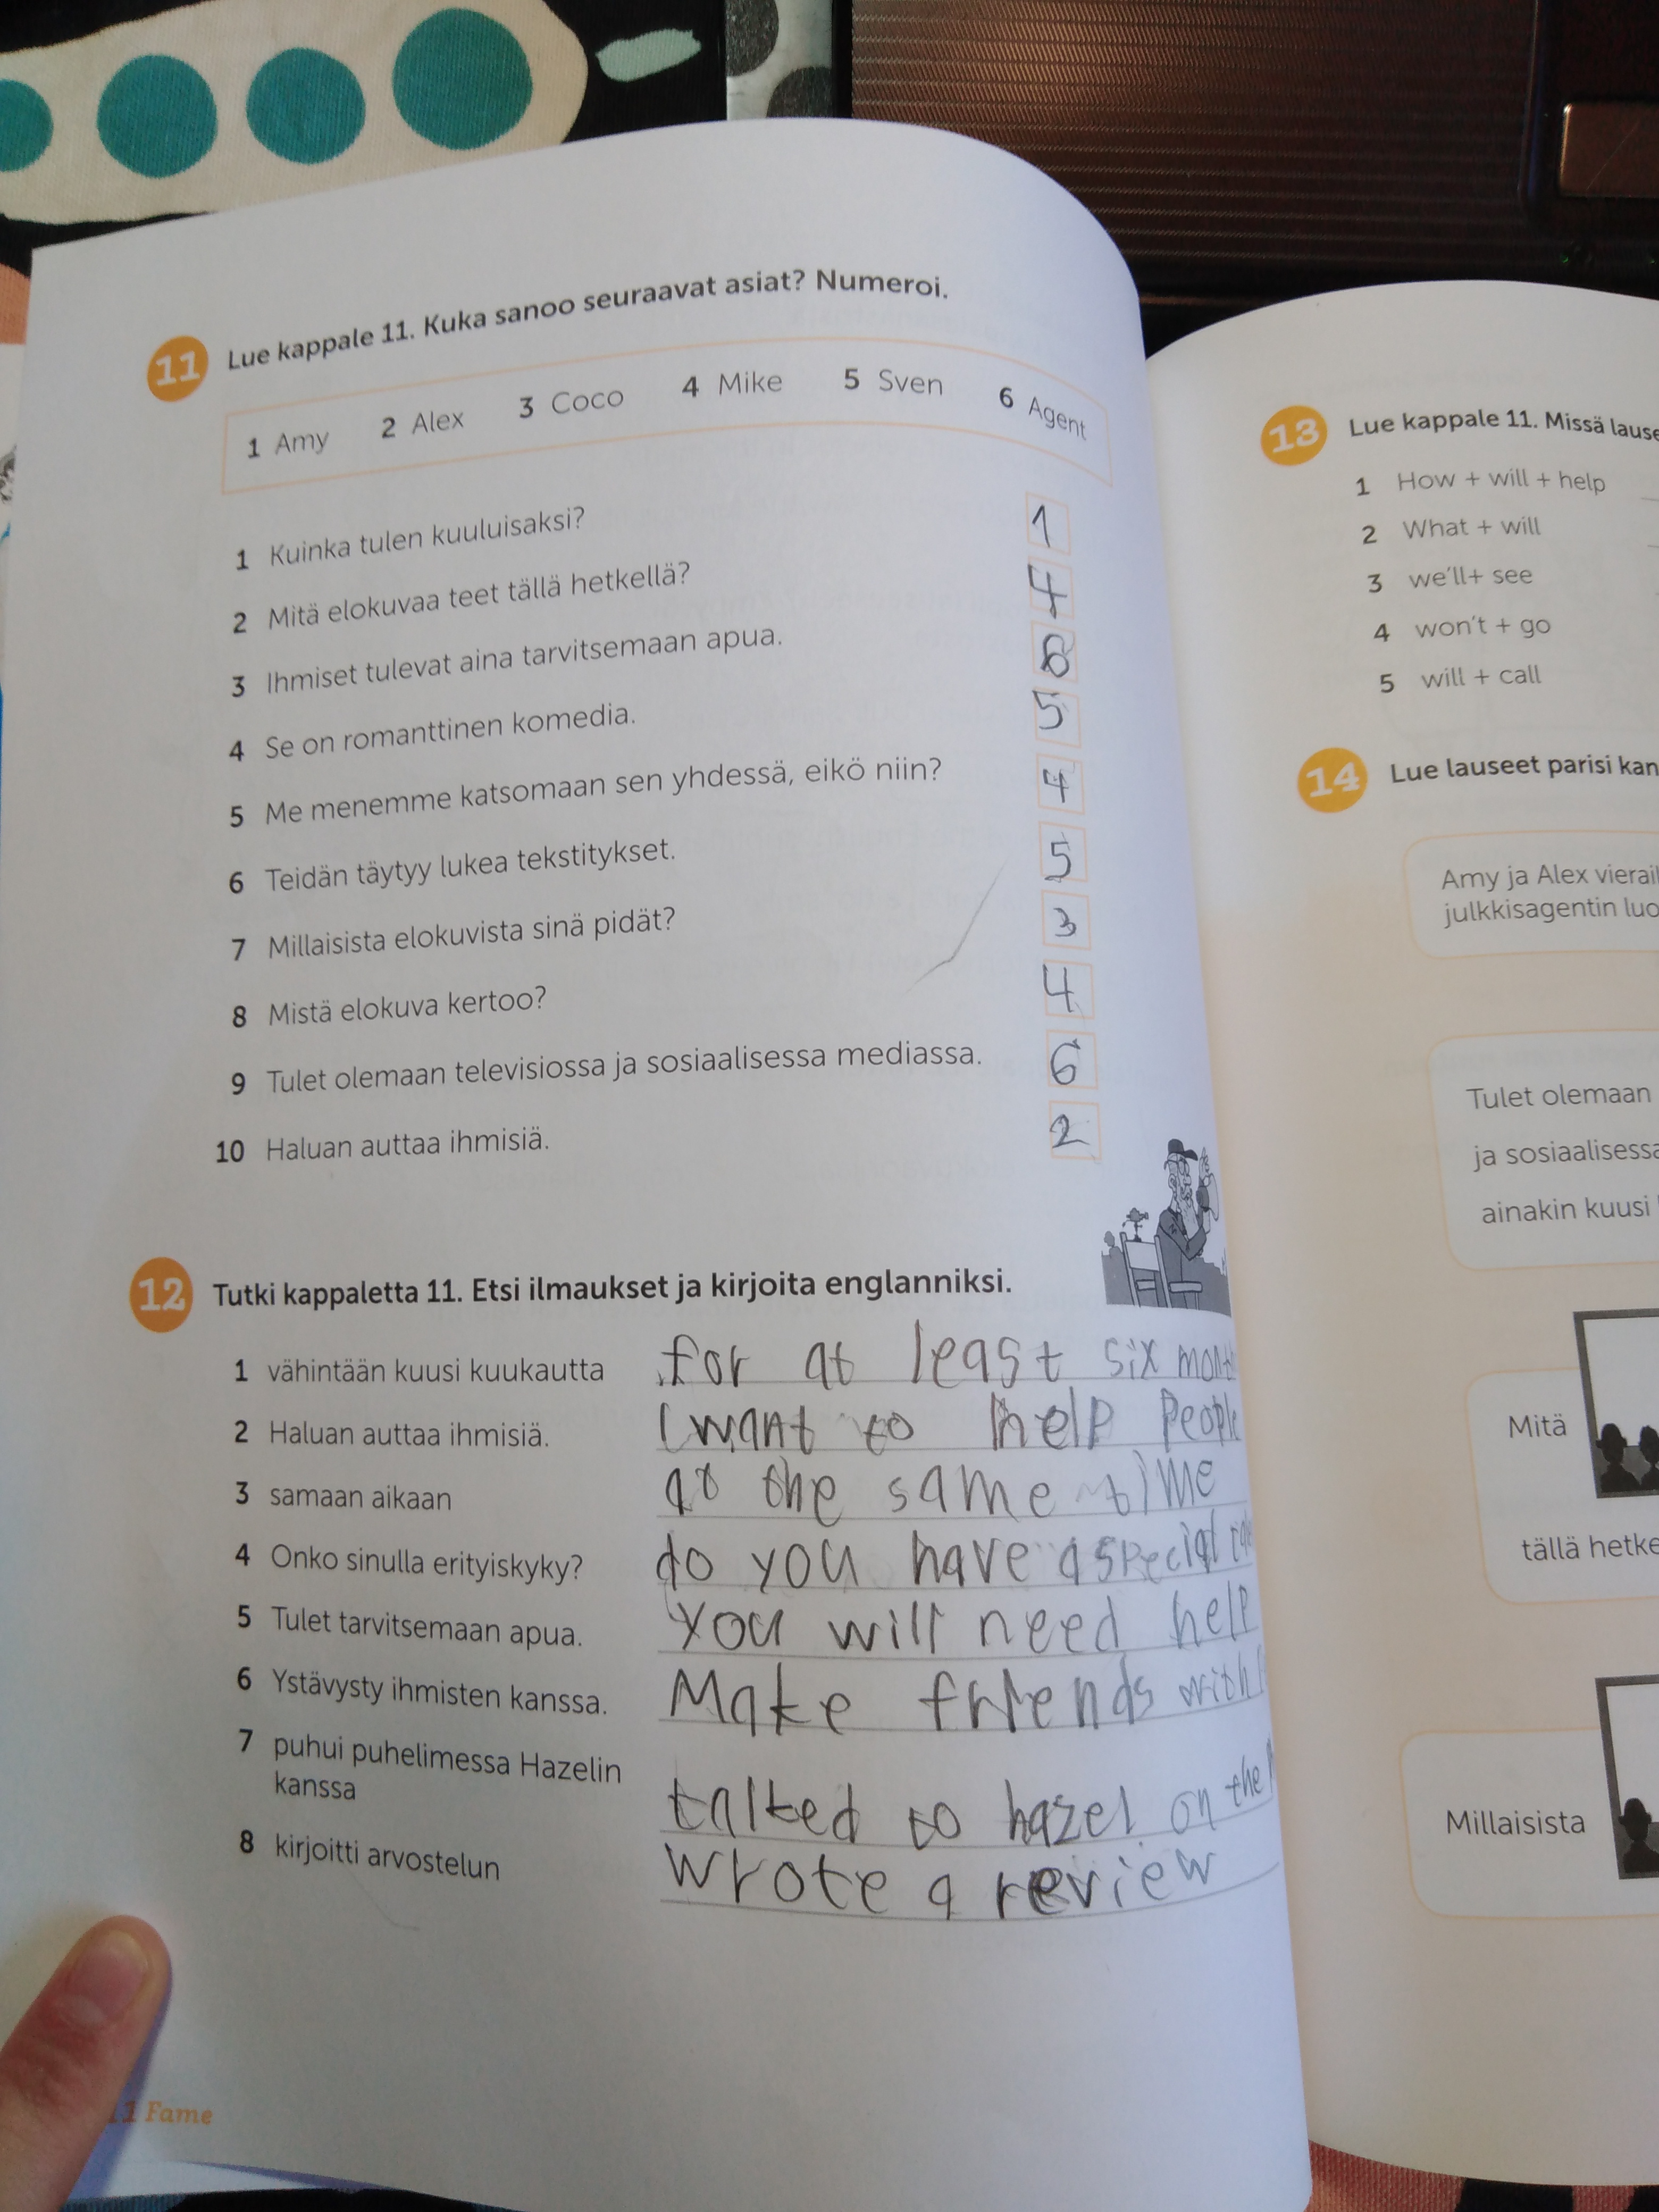 11 Lue kappale 11. Kuka sanoo seuraavat asiat? Numeroi.
1 Amy 2 Alex 3 Coco 4 Mike 5 Sven 6 Agent
1 Kuinka tulen kuuluisaksi? 1
2 Mitä elokuvaa teet tällä hetkellä? 4
3 Ihmiset tulevat aina tarvitsemaan apua. 6
4 Se on romanttinen komedia. 5
5 Me menemme katsomaan sen yhdessä, eikö niin? 4
6 Teidän täytyy lukea tekstitykset. 5
7 Millaisista elokuvista sinä pidät? 3
8 Mistä elokuva kertoo? 4
9 Tulet olemaan televisiossa ja sosiaalisessa mediassa. 6
10 Haluan auttaa ihmisiä. 2
12 Tutki kappaletta 11. Etsi ilmaukset ja kirjoita englanniksi.
1 vähintään kuusi kuukautta for at least six month
2 Haluan auttaa ihmisiä. I want to help people
3 samaan aikaan at the same time
4 Onko sinulla erityiskyky? do you have a special
5 Tulet tarvitsemaan apua. you will need help
6 Ystävysty ihmisten kanssa. Make friends with
7 puhui puhelimessa Hazelin
kanssa talked to hazel on the
8 kirjoitti arvostelun wrote a review
11 Fame
13 Lue kappale 11. Missä lause
1 How + will + help
2 What + will
3 we'll+ see
4 won't + go
5 will + call
14 Lue lauseet parisi kan
Amy ja Alex vierail
julkkisagentin luo
Tulet olemaan
ja sosiaalisessa
ainakin kuusi
Mitä
tällä hetke
Millaisista